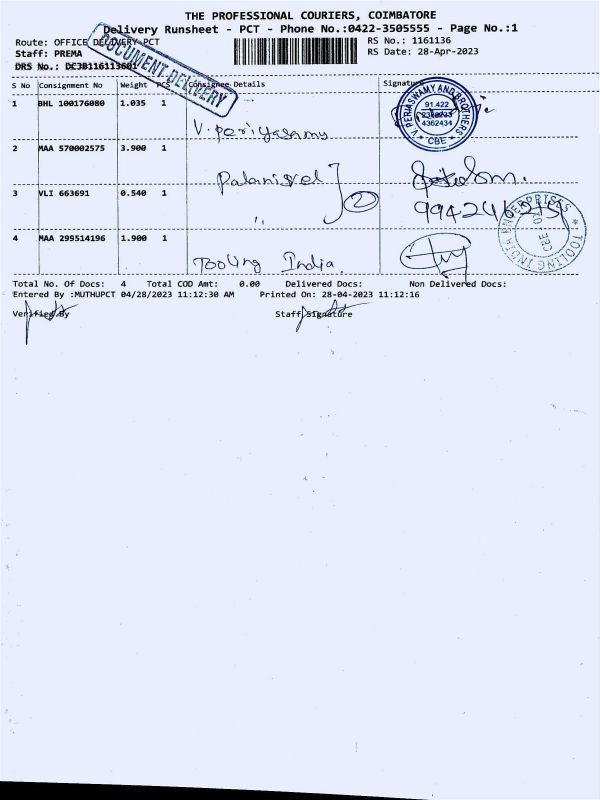 THE PROFESSIONAL COURIERS, COIMBATORE
Delivery Runsheet - PCT - Phone No.:0422-3505555 - Page No.:1
Route: OFFICE DELIVERY-PCT
RS No.: 1161136
Staff: PREMA
RS Date: 28-Apr-2023
DRS No.:
DOCUMENT DELIVERY
S No Consignment No Weight PCS Consignee Details Signature
1 BHL 100176080 1.035 1
V. periyasamy
V. PERIASWAMY AND BROTHERS
91.422
4362434
* CBE *
2 MAA 570002575 3.900 1
Palanivel 2
3 VLI 663691 0.540 1
"
TOOLING INDIA ENTERPRISES *
4 MAA 299514196 1.900 1
Tooling India
Total No. Of Docs: 4 Total COD Amt: 0.00 Delivered Docs: Non Delivered Docs:
Entered By :MUTHUPCT 04/28/2023 11:12:30 AM Printed On: 28-04-2023 11:12:16
Verified By Staff Signature